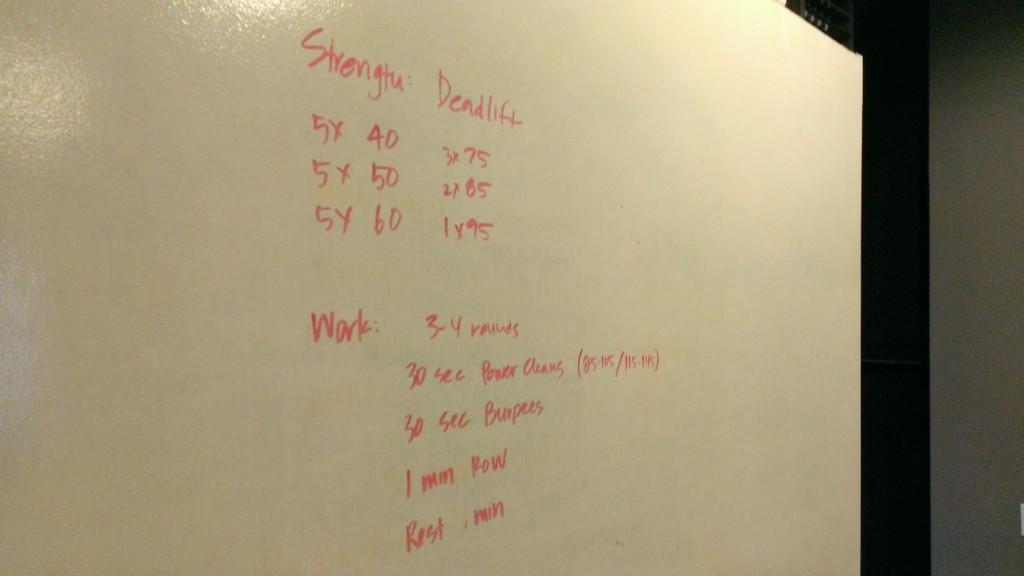 Strength: Deadlift
5x 40 3x75
5x 50 2x85
5x 60 1x95
Work: 3-4 rounds
30 sec Power Cleans (85-105/115-145)
30 sec Burpees
1 min Row
Rest 1 min